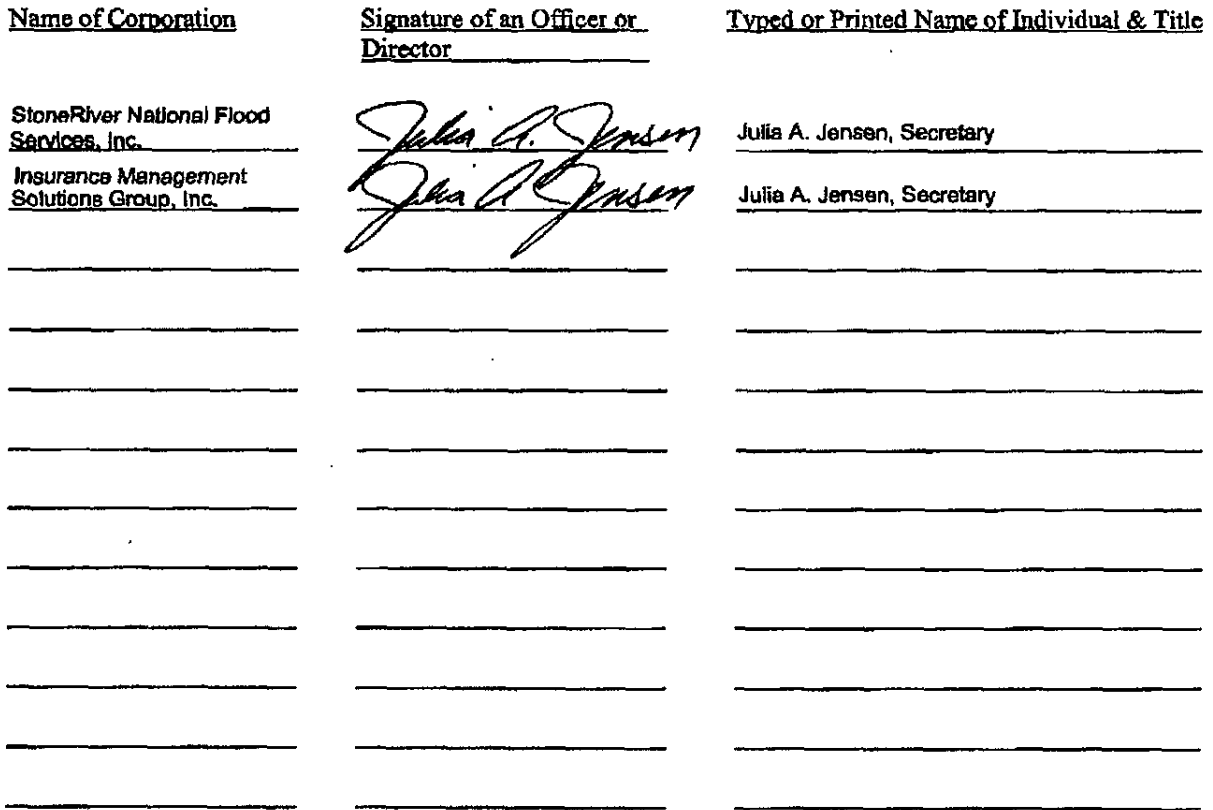 Name of Corporation
Signature of an Officer or
Director
Typed or Printed Name of Individual & Title
StoneRiver National Flood
Services, Inc.
Julia A. Jensen
Julia A. Jensen, Secretary
Insurance Management
Solutions Group, Inc.
Julia A Jensen
Julia A. Jensen, Secretary